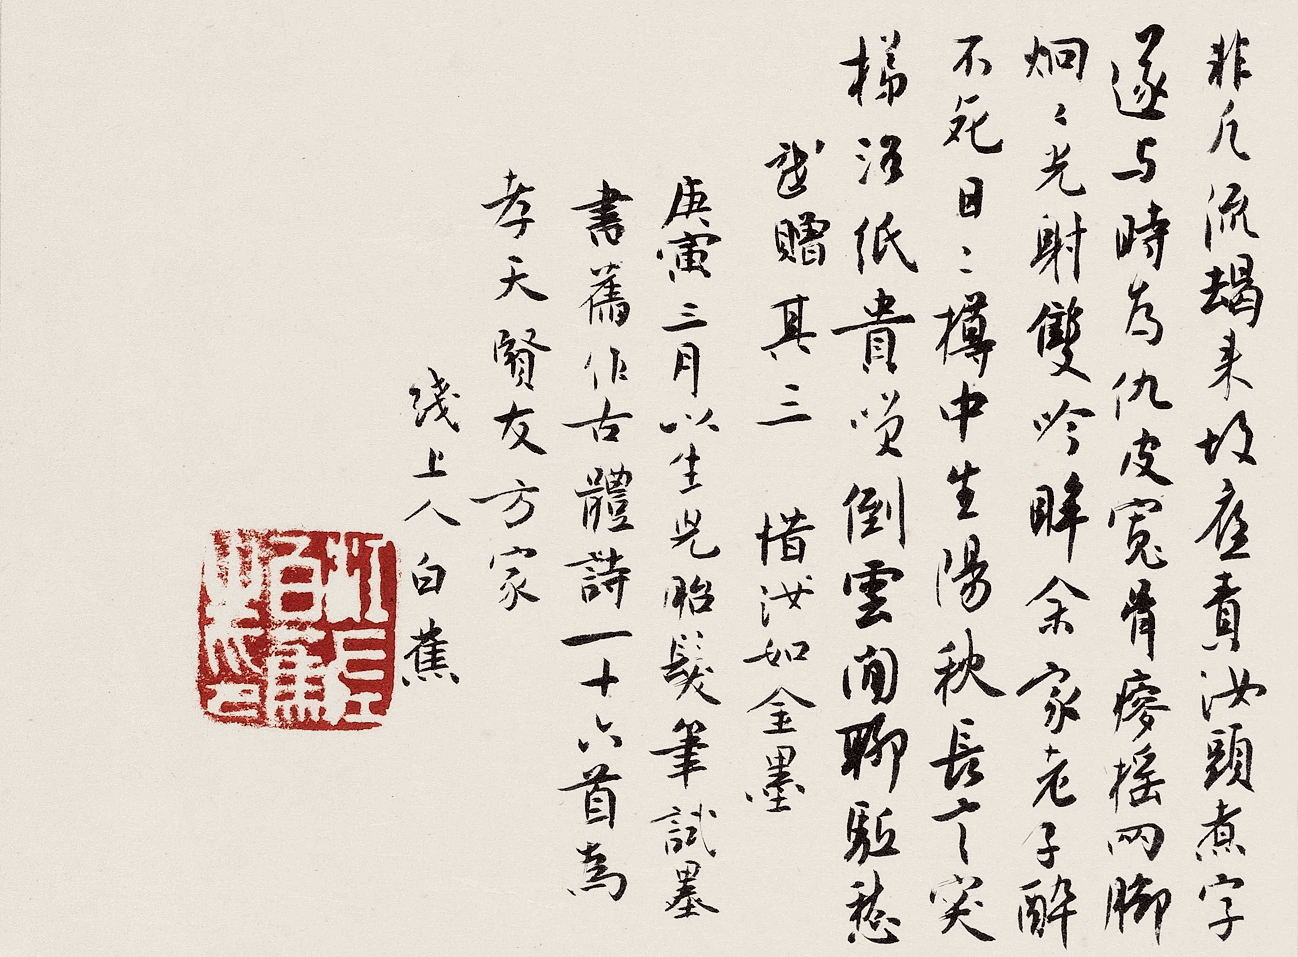 非凡流朅来故应責汝頭煮字
遂与時为仇皮寬骨瘳摇两腳
炯〻光射雙吟眸余家老子醉
不死日〻樽中生陽秋長丁突
梯沼紙貴嘆倒雲間聊駈愁
戲贈其三 惜汝如金墨
庚寅三月以生児胎髮筆試墨
書舊作古體詩一十六首為
孝天賢友方家
淺上人白蕉
白蕉